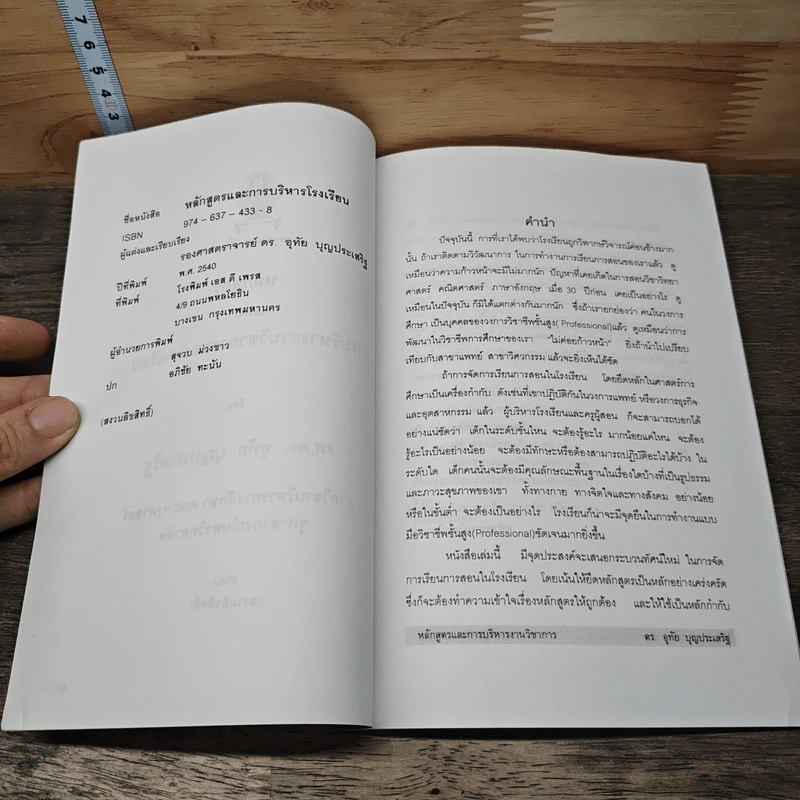 7
6
5
4
3
ชื่อหนังสือ หลักสูตรและการบริหารโรงเรียน
ISBN 974 - 637 - 433 - 8
ผู้แต่งและเรียบเรียง
รองศาสตราจารย์ ดร. อุทัย บุญประเสริฐ
ปีที่พิมพ์ พ.ศ. 2540
ที่พิมพ์ โรงพิมพ์ เอส ดี เพรส
4/9 ถนนพหลโยธิน
บางเขน กรุงเทพมหานคร
ผู้อำนวยการพิมพ์
สุจวบ ม่วงขาว
ปก อภิชัย ทะนัน
(สงวนลิขสิทธิ์)
คำนำ
ปัจจุบันนี้ การที่เราได้พบว่าโรงเรียนถูกวิพากษ์วิจารณ์ค่อนข้างมาก
นั้น ถ้าเราติดตามวิวัฒนาการ ในการทำงานการเรียนการสอนของเราแล้ว ดู
เหมือนว่าความก้าวหน้าจะมีไม่มากนัก ปัญหาที่เคยเกิดในการสอนวิชาวิทยา
ศาสตร์ คณิตศาสตร์ ภาษาอังกฤษ เมื่อ 30 ปีก่อน เคยเป็นอย่างไร ดู
เหมือนในปัจจุบัน ก็มิได้แตกต่างกันมากนัก ซึ่งถ้าเรายกย่องว่า คนในวงการ
ศึกษา เป็นบุคคลของวงการวิชาชีพชั้นสูง( Professional)แล้ว ดูเหมือนว่าการ
พัฒนาในวิชาชีพการศึกษาของเรา "ไม่ค่อยก้าวหน้า" ยิ่งถ้านำไปเปรียบ
เทียบกับสาขาแพทย์ สาขาวิศวกรรม แล้วจะยิ่งเห็นได้ชัด
ถ้าการจัดการเรียนการสอนในโรงเรียน โดยยึดหลักในศาสตร์การ
ศึกษาเป็นเครื่องกำกับ ดังเช่นที่เขาปฏิบัติกันในวงการแพทย์ หรือวงการธุรกิจ
และอุตสาหกรรม แล้ว ผู้บริหารโรงเรียนและครูผู้สอน ก็จะสามารถบอกได้
อย่างแน่ชัดว่า เด็กในระดับชั้นไหน จะต้องรู้อะไร มากน้อยแค่ไหน จะต้อง
รู้อะไรเป็นอย่างน้อย จะต้องมีทักษะหรือต้องสามารถปฏิบัติอะไรได้บ้าง ใน
ระดับใด เด็กคนนั้นจะต้องมีคุณลักษณะพื้นฐานในเรื่องใดบ้างที่เป็นรูปธรรม
และภาวะสุขภาพของเขา ทั้งทางกาย ทางจิตใจและทางสังคม อย่างน้อย
หรือในขั้นต่ำ จะต้องเป็นอย่างไร โรงเรียนก็น่าจะมีจุดยืนในการทำงานแบบ
มือวิชาชีพชั้นสูง(Professional)ชัดเจนมากยิ่งขึ้น
หนังสือเล่มนี้ มีจุดประสงค์จะเสนอกระบวนทัศน์ใหม่ ในการจัด
การเรียนการสอนในโรงเรียน โดยเน้นให้ยึดหลักสูตรเป็นหลักอย่างเคร่งครัด
ซึ่งก็จะต้องทำความเข้าใจเรื่องหลักสูตรให้ถูกต้อง และให้ใช้เป็นหลักกำกับ
หลักสูตรและการบริหารงานวิชาการ ดร. อุทัย บุญประเสริฐ